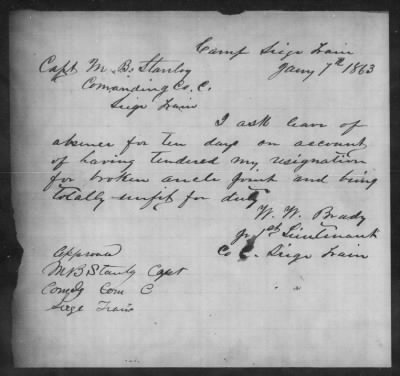 Camp Siege Train
Jany 7th 1863
Capt M. B. Stanley
Comanding Co. C.
Siege Train
I ask leave of
absence for ten days on account
of having tendered my resignation
for broken ancle joint and being
totally unfit for duty
W. W. Brady
Jr 1st Lieutenant
Co C. Siege Train
Approved
M B Stanly Capt
Comdg Com C
Siege Train